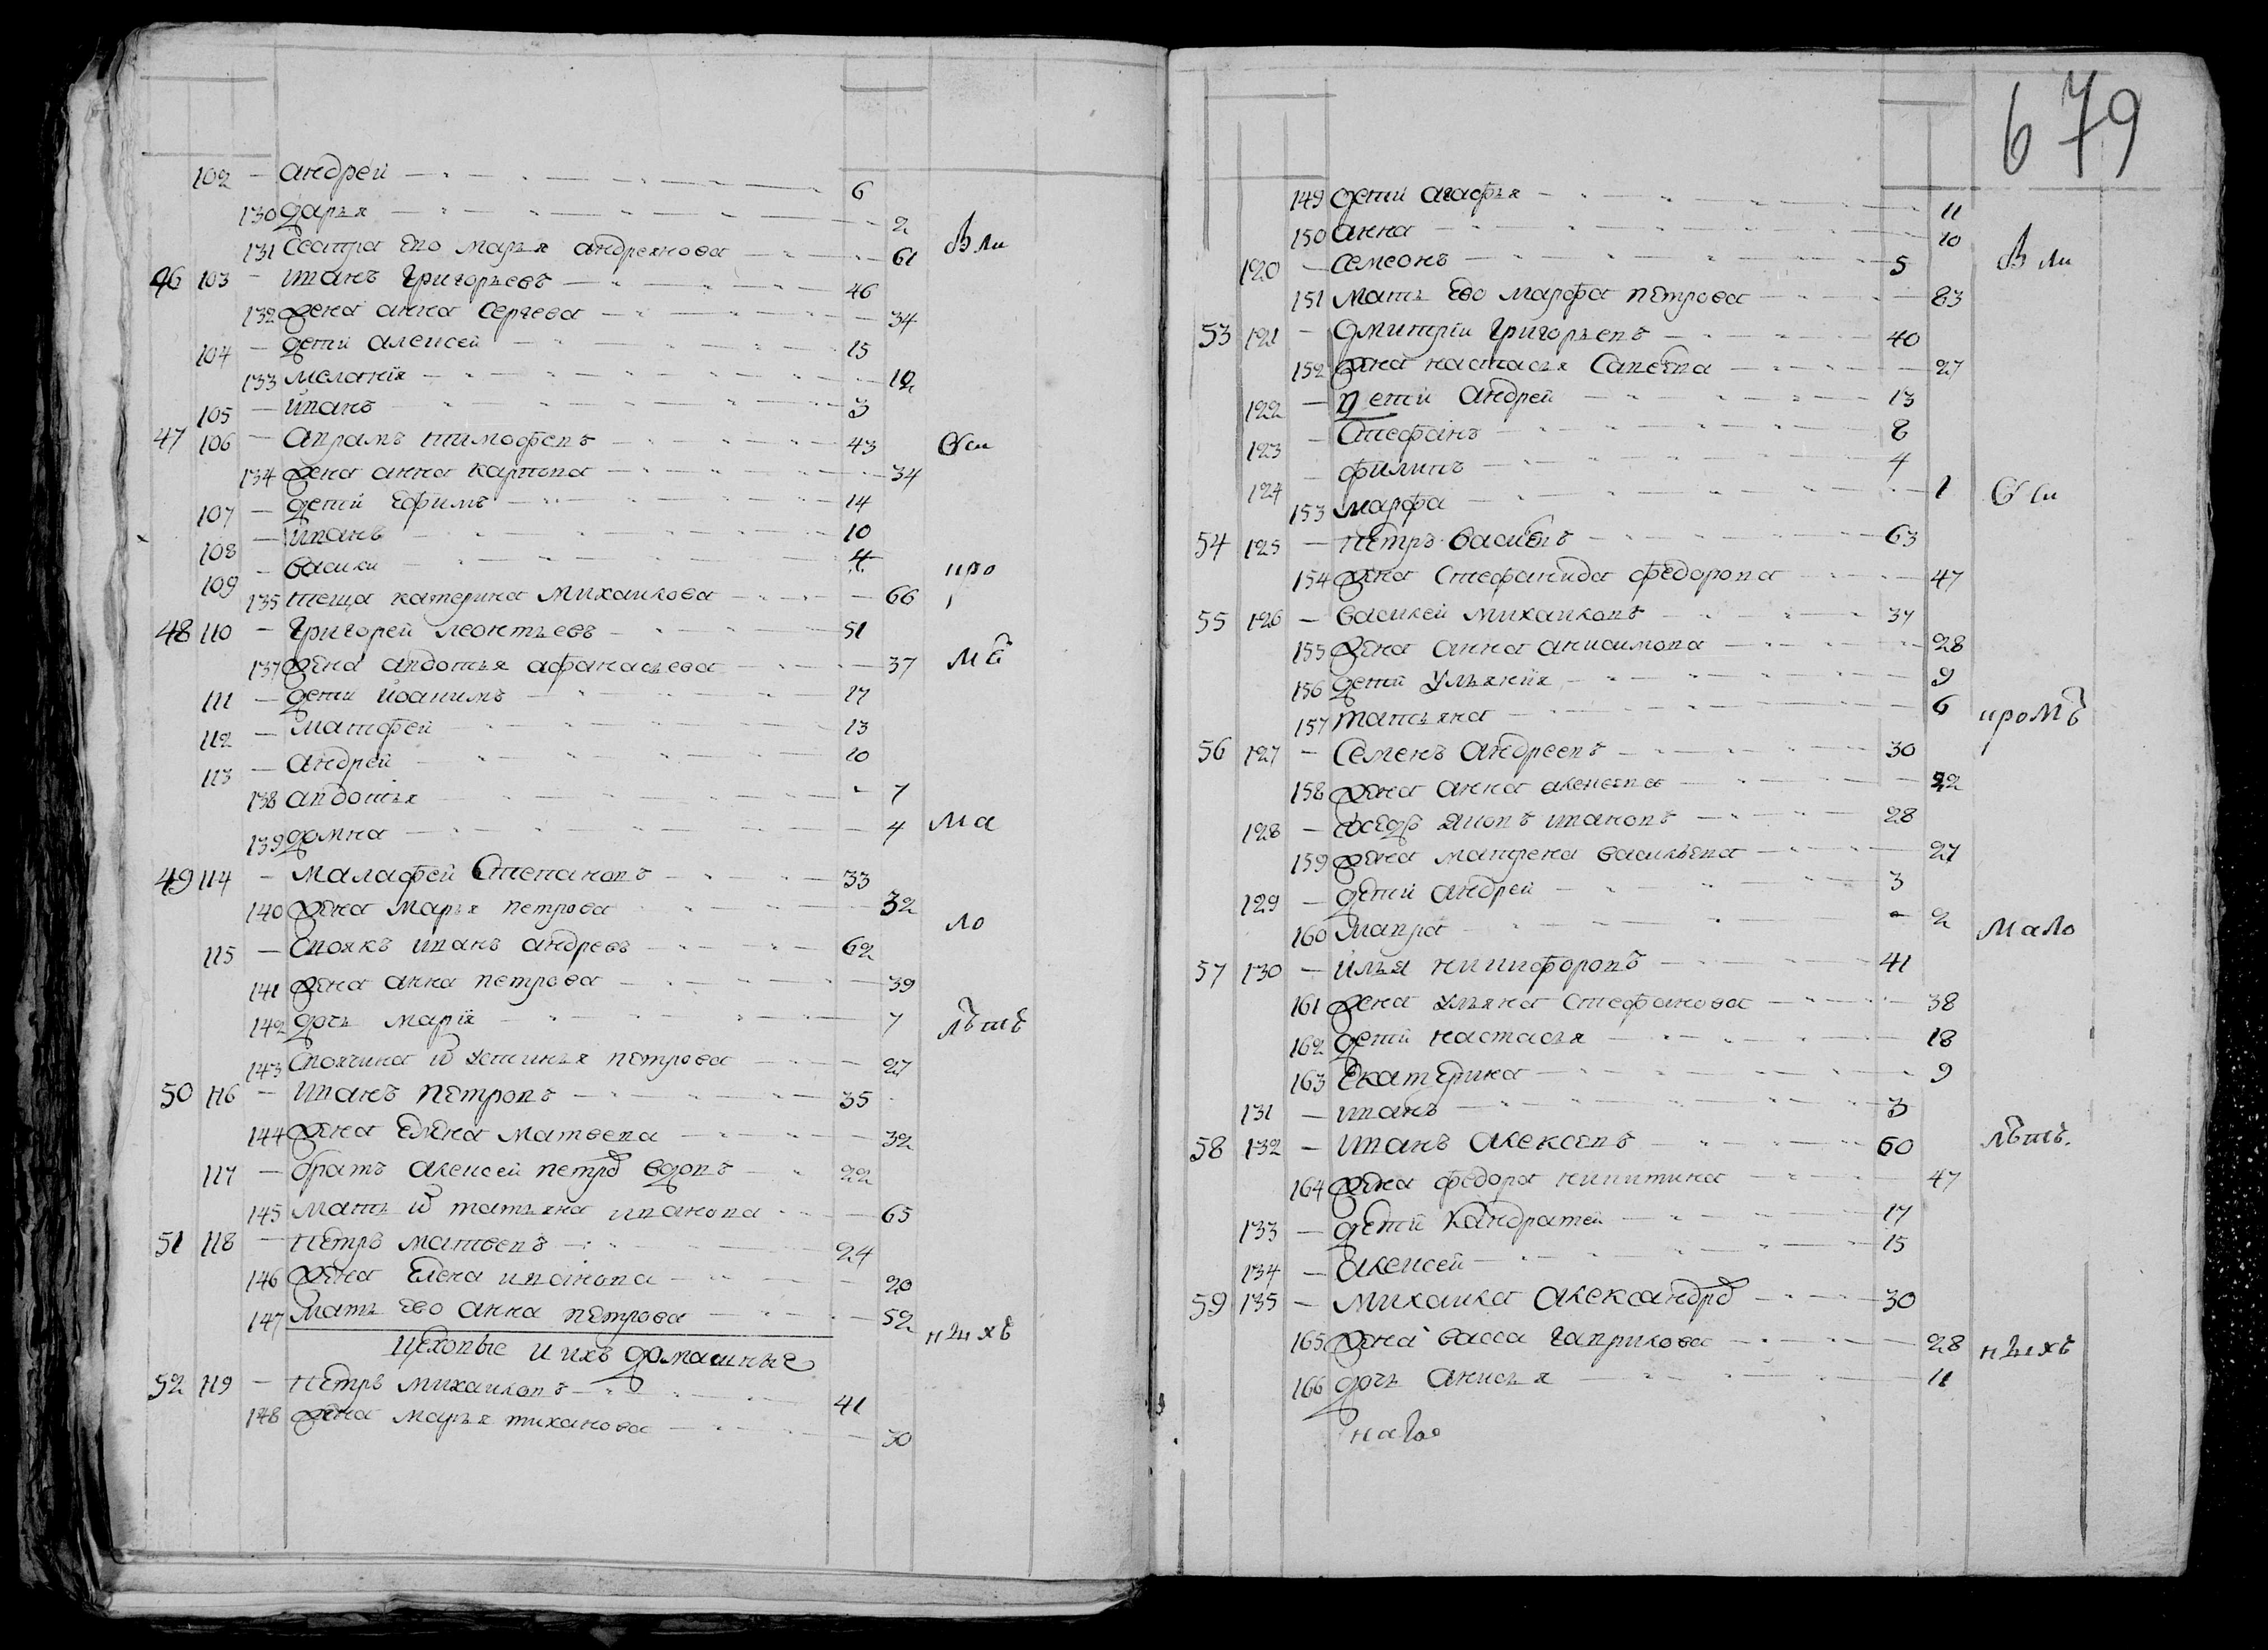 102 — андрей — 6
130 дарья — 2
131 Сестра Ево марья андреянова — 61
Вли
46 103 — иванъ Григорьевъ — 46
132 жена анна Сергева — 34
104 — дети алексей — 15
133 меланія — 12
105 — иванъ — 3
47 106 — аврамъ тимофевъ — 43
Оси
134 жена анна карпова — 34
107 — дети Ефимъ — 14
108 — иванъ — 10
109 — васили — 4
про
135 теща катерина михаилова — 66
48 110 — Григорей леонтьевъ — 51
137 жена авдотья афанасьева — 37
мѢ
111 — дети иоакимъ — 17
112 — матфей — 13
113 — андрей — 10
138 авдотья — 7
139 домна — 4
ма
49 114 — малафей Степановъ — 33
140 жена марья петрова — 32
ло
115 — Своякъ иванъ андреевъ — 62
141 жена анна петрова — 39
142 дочь марія — 7
лѣтѣ
143 Своячина ѿ устинья петрова — 27
50 116 — иванъ петровъ — 35
144 жена елена матвева — 32
117 — братъ алексей петро вдовъ — 22
145 мать ѿ татьяна иванова — 65
51 118 — петръ матвевъ — 24
146 жена Елена иванова — 20
147 мать ево анна петрова — 52
ныхъ
Цеховые и ихъ домашные
52 119 — петръ михаиловъ — 41
148 жена марья тиханова — 30
679
149 дети агафья — 11
150 анна — 10
Вли
120 — Семеонъ — 5
151 мать Ево марфа петрова — 83
53 121 — дмитрїи Григорьевъ — 40
152 жена настасья Савева — 27
122 — дети андрей — 13
123 — Стефанъ — 8
124 — филипъ — 4
153 марфа — 1
Оси
54 125 — петръ василевъ — 63
154 жена Стефанида федорова — 47
55 126 — василей михаиловъ — 37
155 жена анна анисимова — 28
156 дети ульянія — 9
157 татьяна — 6
промѢ
56 127 — Семенъ андреевъ — 30
158 жена анна алексева — 22
128 — федоръ ивановъ — 28
159 жена матрена васильева — 27
129 — дети андрей — 3
160 мавра — 2
мало
57 130 — илья никифоровъ — 41
161 жена ульяна Стефанова — 38
162 дети настасья — 18
163 Екатерина — 9
131 — иванъ — 3
лѣтъ.
58 132 — иванъ алексевъ — 60
164 жена федора никитина — 47
133 — дети Кандратей — 17
134 — алексей — 15
59 135 — михаила александро — 30
165 жена васса гаврилова — 28
ныхъ
166 дочь анисья — 11